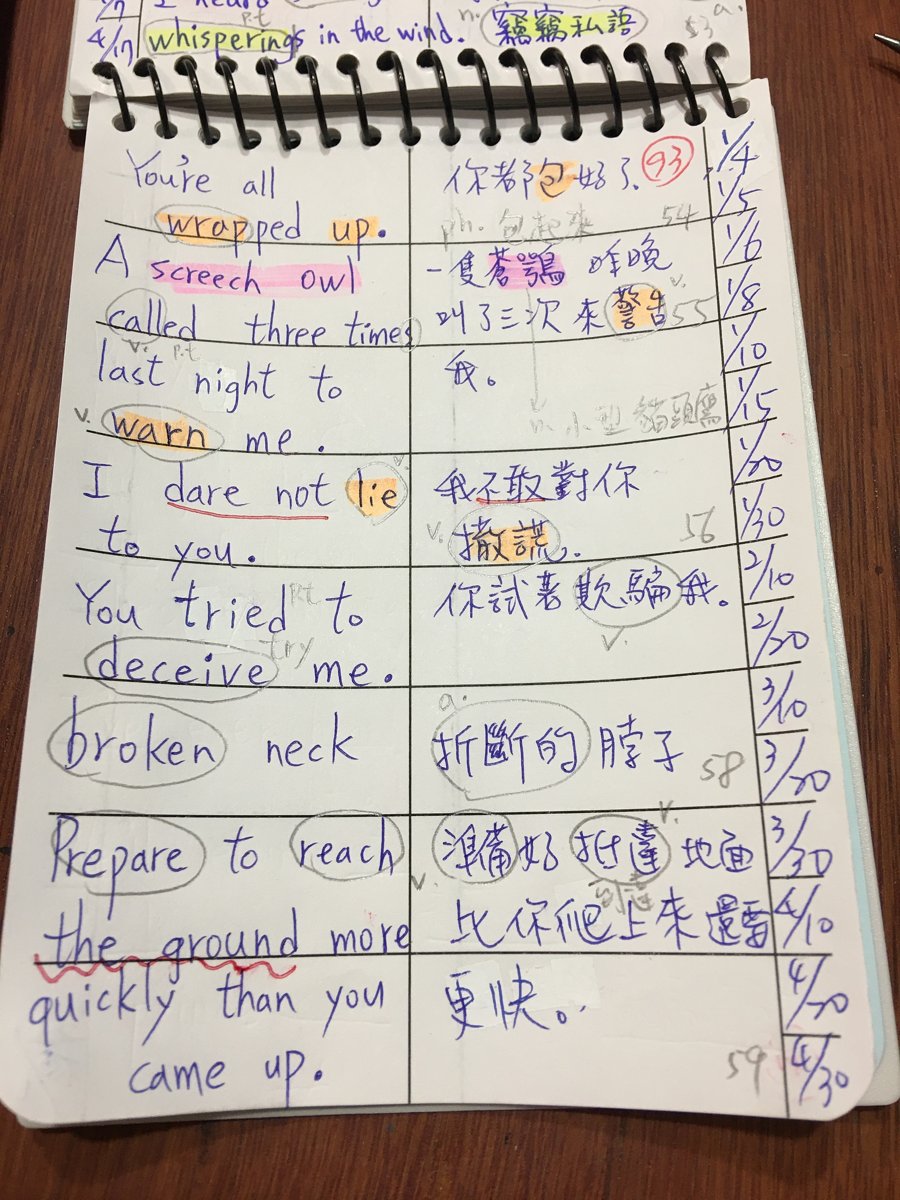 4/17 whisperings in the wind. n. 竊竊私語 53 a.
p.t
You're all
wrapped up.
A screech owl
called three times
v. p.t
last night to
v. warn me.
I dare not lie v.
to you.
You tried to
p.t
try
deceive me.
broken neck
Prepare to reach
the ground more
quickly than you
came up.
你都包好了. 93
ph. 包起來 54
一隻蒼鴞 昨晚
叫了三次 來 警告 v. 55
我。
n. 小型貓頭鷹
我不敢對你
v. 撒謊. 56
你試著欺騙我。
v.
a.
折斷的 脖子 58
v.
準備好 抵達 地面
v. 到達
比你爬上來還要
更快。
59
1/4
1/5
1/6
1/8
1/10
1/15
1/20
1/30
2/10
2/20
3/10
3/20
3/30
4/10
4/20
4/30